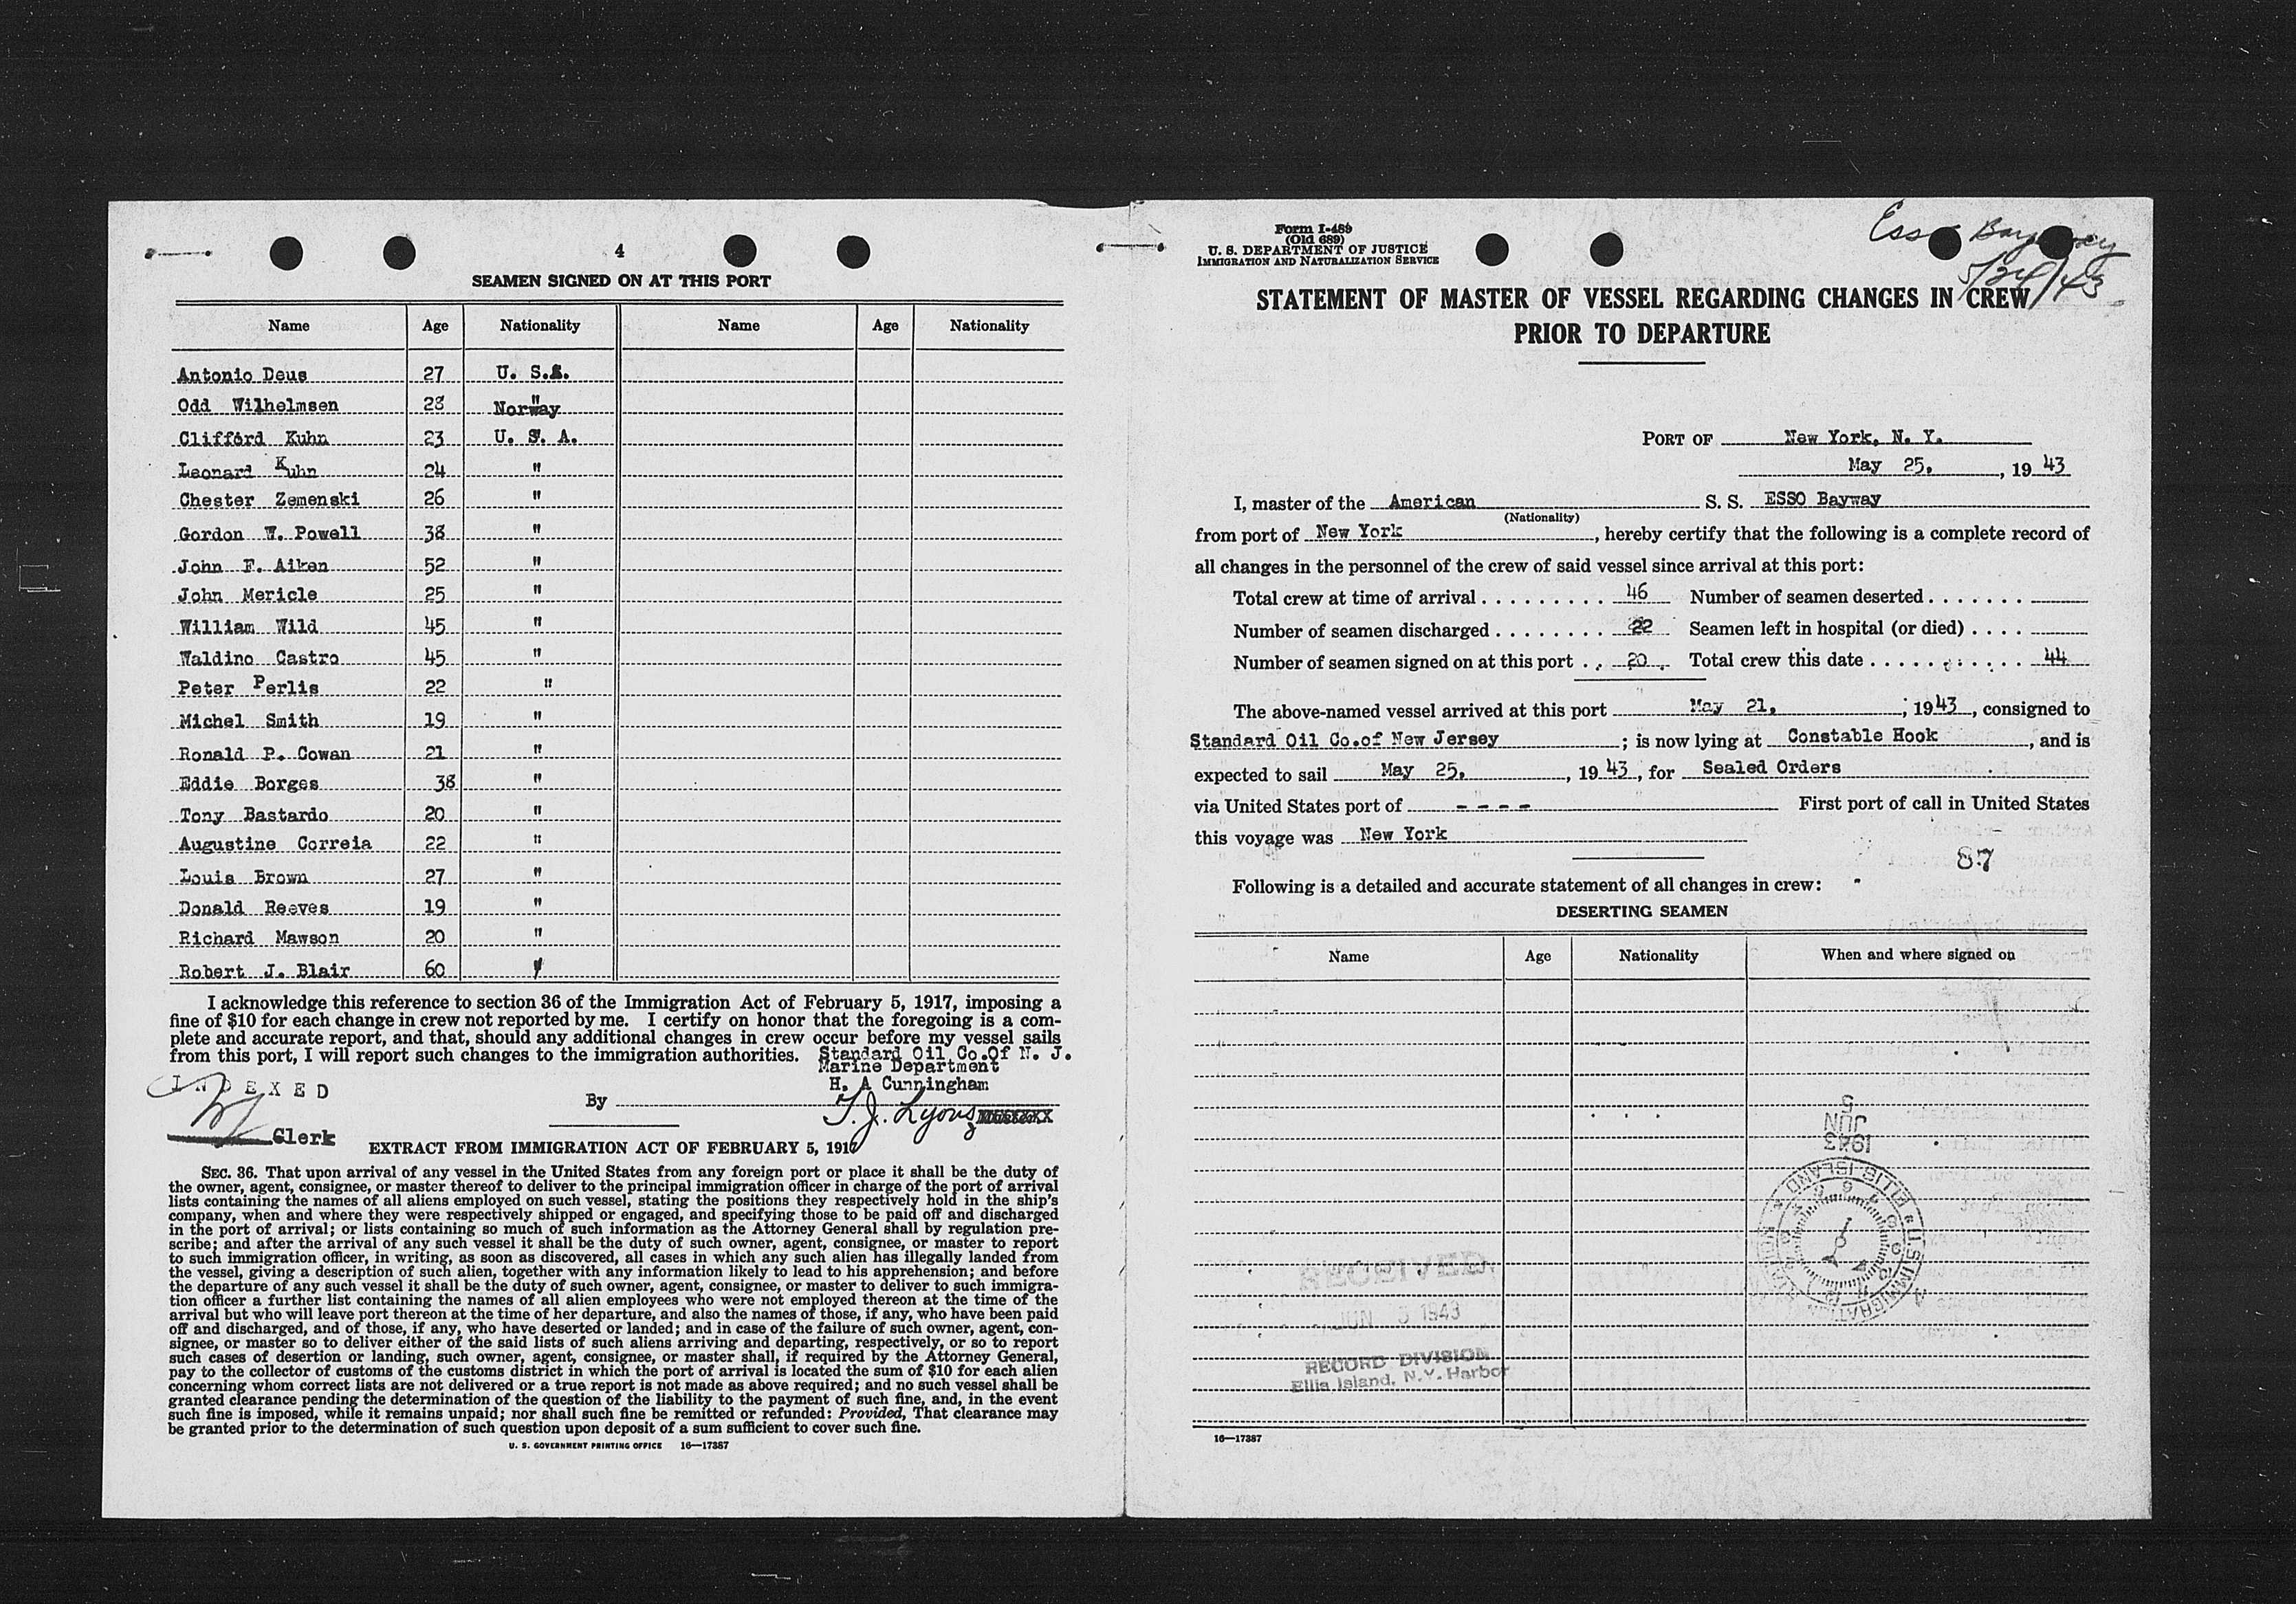 4
SEAMEN SIGNED ON AT THIS PORT
Name Age Nationality Name Age Nationality
Antonio Deus 27 U. S.A.
Odd Wilhelmsen 28 Norway "
Clifford Kuhn 23 U. S. A.
Leonard Kuhn 24 "
Chester Zemenski 26 "
Gordon W. Powell 38 "
John F. Aiken 52 "
John Mericle 25 "
William Wild 45 "
Waldino Castro 45 "
Peter Perlis 22 "
Michel Smith 19 "
Ronald P. Cowan 21 "
Eddie Borges 38 "
Tony Bastardo 20 "
Augustine Correia 22 "
Louis Brown 27 "
Donald Reeves 19 "
Richard Mawson 20 "
Robert J. Blair 60 "
I acknowledge this reference to section 36 of the Immigration Act of February 5, 1917, imposing a
fine of $10 for each change in crew not reported by me. I certify on honor that the foregoing is a com-
plete and accurate report, and that, should any additional changes in crew occur before my vessel sails
from this port, I will report such changes to the immigration authorities. Standard Oil Co.Of N. J.
Marine Department
INDEXED H. A Cunningham
By T. J. Lyons
Clerk
EXTRACT FROM IMMIGRATION ACT OF FEBRUARY 5, 1917
SEC. 36. That upon arrival of any vessel in the United States from any foreign port or place it shall be the duty of
the owner, agent, consignee, or master thereof to deliver to the principal immigration officer in charge of the port of arrival
lists containing the names of all aliens employed on such vessel, stating the positions they respectively hold in the ship's
company, when and where they were respectively shipped or engaged, and specifying those to be paid off and discharged
in the port of arrival; or lists containing so much of such information as the Attorney General shall by regulation pre-
scribe; and after the arrival of any such vessel it shall be the duty of such owner, agent, consignee, or master to report
to such immigration officer, in writing, as soon as discovered, all cases in which any such alien has illegally landed from
the vessel, giving a description of such alien, together with any information likely to lead to his apprehension; and before
the departure of any such vessel it shall be the duty of such owner, agent, consignee, or master to deliver to such immigra-
tion officer a further list containing the names of all alien employees who were not employed thereon at the time of the
arrival but who will leave port thereon at the time of her departure, and also the names of those, if any, who have been paid
off and discharged, and of those, if any, who have deserted or landed; and in case of the failure of such owner, agent, con-
signee, or master so to deliver either of the said lists of such aliens arriving and departing, respectively, or so to report
such cases of desertion or landing, such owner, agent, consignee, or master shall, if required by the Attorney General,
pay to the collector of customs of the customs district in which the port of arrival is located the sum of $10 for each alien
concerning whom correct lists are not delivered or a true report is not made as above required; and no such vessel shall be
granted clearance pending the determination of the question of the liability to the payment of such fine, and, in the event
such fine is imposed, while it remains unpaid; nor shall such fine be remitted or refunded: Provided, That clearance may
be granted prior to the determination of such question upon deposit of a sum sufficient to cover such fine.
U. S. GOVERNMENT PRINTING OFFICE 16—17387
Form I-489
(Old 689)
U. S. DEPARTMENT OF JUSTICE
IMMIGRATION AND NATURALIZATION SERVICE
Esso Bayway
5/24/43
STATEMENT OF MASTER OF VESSEL REGARDING CHANGES IN CREW
PRIOR TO DEPARTURE
PORT OF New York, N. Y.
May 25, , 19 43
I, master of the American S. S. ESSO Bayway
(Nationality)
from port of New York , hereby certify that the following is a complete record of
all changes in the personnel of the crew of said vessel since arrival at this port:
Total crew at time of arrival . . . . . . . . . 46 Number of seamen deserted . . . . . . .
Number of seamen discharged . . . . . . . . 22 Seamen left in hospital (or died) . . . .
Number of seamen signed on at this port . . 20 Total crew this date . . . . . . . . . . . . 44
The above-named vessel arrived at this port May 21, ; 1943 , consigned to
Standard Oil Co.of New Jersey ; is now lying at Constable Hook , and is
expected to sail May 25, , 19 43 , for Sealed Orders
via United States port of - - - - First port of call in United States
this voyage was New York
87
Following is a detailed and accurate statement of all changes in crew:
DESERTING SEAMEN
Name Age Nationality When and where signed on
1943
JUN
5
U.S. IMMIGRATION STATION ELLIS ISLAND
RECEIVED
JUN 5 1943
RECORD DIVISION
Ellis Island, N.Y. Harbor
16—17387